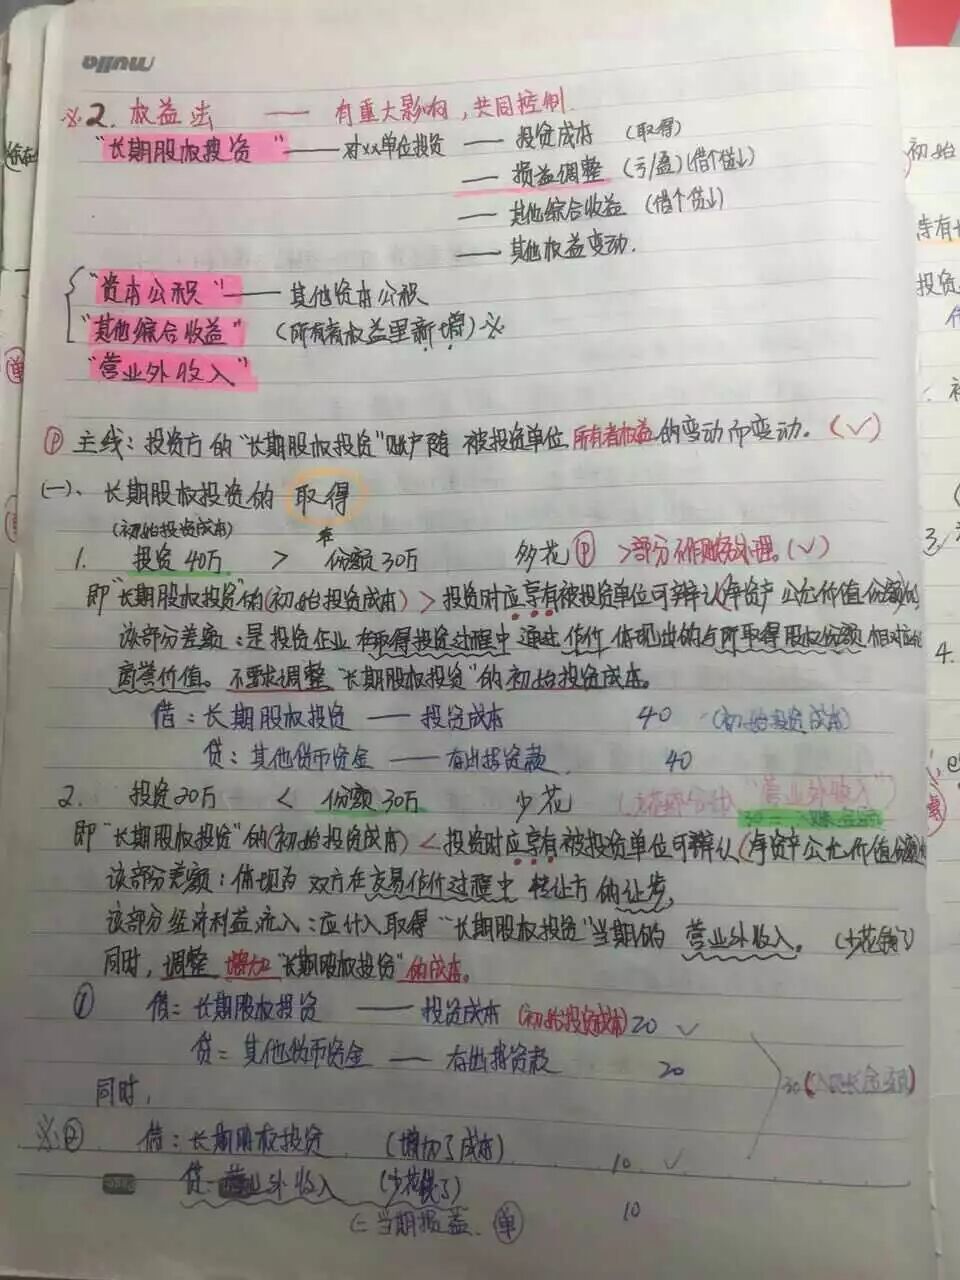 ※2. 权益法 —— 有重大影响,共同控制.
"长期股权投资" —— 对xx单位投资 — 投资成本 (取得)
— 损益调整 (亏/盈)(借个贷↓)
— 其他综合收益 (借个贷↓)
— 其他权益变动.
"资本公积" —— 其他资本公积
"其他综合收益" (所有者权益里新增)※
"营业外收入"
Ⓟ 主线:投资方的"长期股权投资"账户随 被投资单位 所有者权益 的变动而变动. (√)
(一)、长期股权投资的 取得
(初始投资成本)
1. 投资40万 > 份额30万 多花 Ⓟ >部分不作账务处理。(√)
即"长期股权投资"的(初始投资成本) > 投资时应享有被投资单位可辨认(净资产公允价值份额)
该部分差额:是投资企业在取得投资过程中通过作价体现出的与所取得股权份额相对应的
商誉价值。不要求调整"长期股权投资"的初始投资成本。
借:长期股权投资 —— 投资成本 40 (初始投资成本)
贷:其他货币资金 —— 存出投资款 40
2. 投资20万 < 份额30万 少花 "营业外收入")
即"长期股权投资"的(初始投资成本) < 投资时应享有被投资单位可辨认(净资产公允价值份额)
该部分差额:体现为 双方在交易作价过程中 转让方的让步,
该部分经济利益流入:应计入取得"长期股权投资"当期的 营业外收入。 (少花钱了)
同时,调整 增加"长期股权投资"的成本。
① 借:长期股权投资 —— 投资成本 (初始投资成本) 20 √
贷:其他货币资金 — 存出投资款 20
30 (入账金额)
同时,
※② 借:长期股权投资 (增加了成本) 10 √
贷:营业外收入 (少花钱了) 10
当期损益. 单